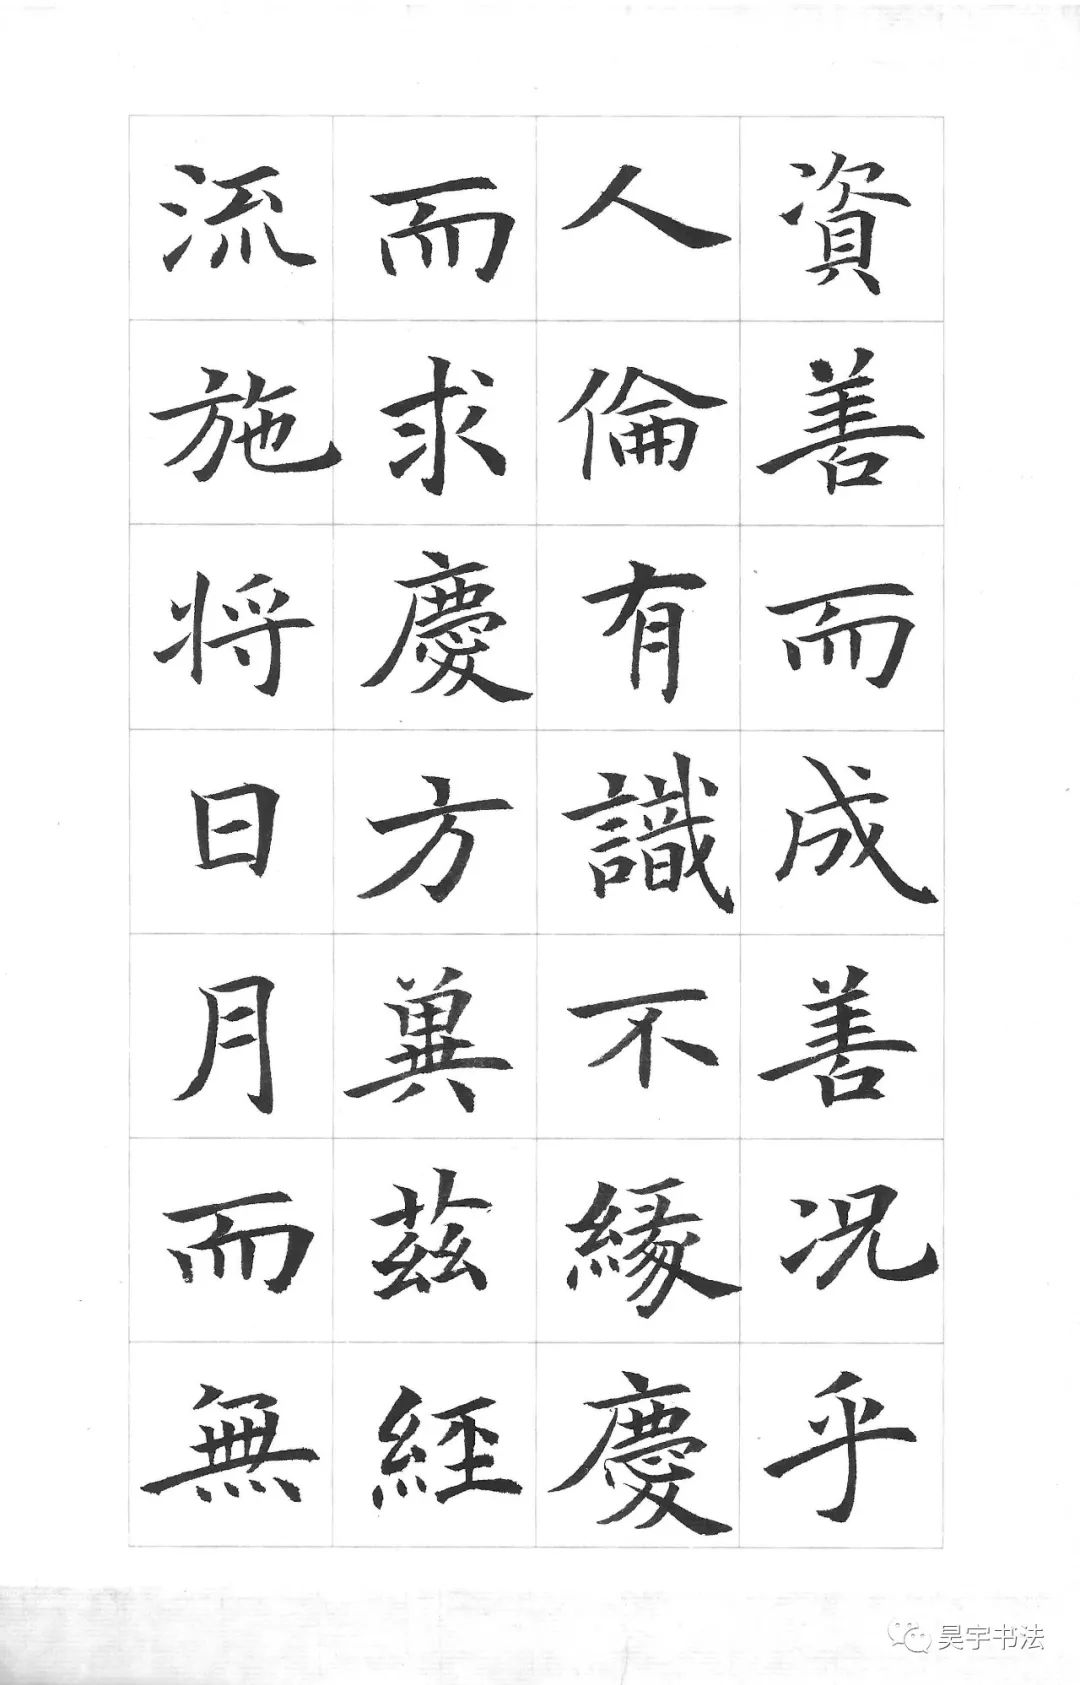 資善而成善况乎
人倫有識不緣慶
而求慶方兾茲經
流施将日月而無
昊宇书法